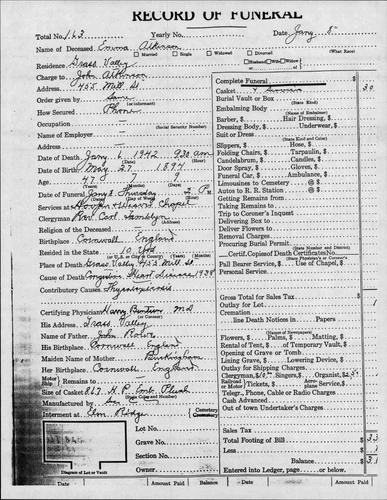 RECORD OF FUNERAL
Total No. 163 Yearly No. Date Jany. 8
Name of Deceased Emma Atkinson
Married Single Widowed Divorced (What Race)
Residence Grass Valley Husband Wife Widow
Charge to John Atkinson
Address 455 Mill St
Order given by Same
How Secured Phone
Occupation
(Social Security Number)
Name of Employer
Address
Date of Death Jany 6 1942 9:30 am
Date of Birth May 27 1894
Age 47 7 9
(Years) (Months) (Days)
Date of Jany 8 Thursday 2 Pm
Services at Hooper & Weavers Chapel
Clergyman Rev Carl
Religion of the Deceased
Birthplace Cornwall England
Resided in the State
Place of Death Grass Valley 455 Mill St.
Cause of Death Heart disease 1938
Contributory Causes
Certifying Physician Harry M D
His Address Grass Valley
Name of Father John Rowe
His Birthplace Cornwall England
Maiden Name of Mother Buckingham
Her Birthplace Cornwall England
Remains to
Size of Casket
Manufactured by
Interment at Elm Ridge Cemetery
Lot No.
Grave No.
Section No.
Block No.
Owner
Diagram of Lot or Vault
Complete Funeral
Casket
Burial Vault or Box
(State Kind)
Embalming Body
(Name of Embalmer)
Barber, Hair Dressing, $
Dressing Body, $ Underwear, $
Suit or Dress
(State Kind)
Slippers, $ Hose, $
Folding Chairs, $ Tarpaulin, $
Candelabrum, $ Candles, $
Door Spray, $ Gloves, $
Funeral Car, $ Ambulance, $
Limousines to Cemetery @ $
Autos to R. R. Station @ $
Getting Remains from
Taking Remains to
Trip to Coroner's Inquest
Delivering Box to
Deliver Flowers to
Removal Charges
Procuring Burial Permit
(State Number and District)
Certif. Copies of Death Certificates No.
Pall Bearer Service Use of Chapel, $
Personal Service
Gross Total for Sales Tax
Outlay for Lot
Cremation
line Death Notices in Papers
(Names of Newspapers)
Flowers, $ Palms, $ Matting, $
Rental of Tent, $ of Temporary Vault, $
Opening of Grave or Tomb
Lining Grave, $ Lowering Device, $
Outlay for Shipping Charges
Clergyman, $ Singers, $ Organist, $
Tickets, $ Service, $
Teleg., Phone, Cable or Radio Charges
Cash Advanced
Out of town Undertaker's Charges
Sales Tax
Total Footing of Bill
Less
Balance
Entered into Ledger, page or below.
Date Amount Paid Balance Date Amount Paid Balance